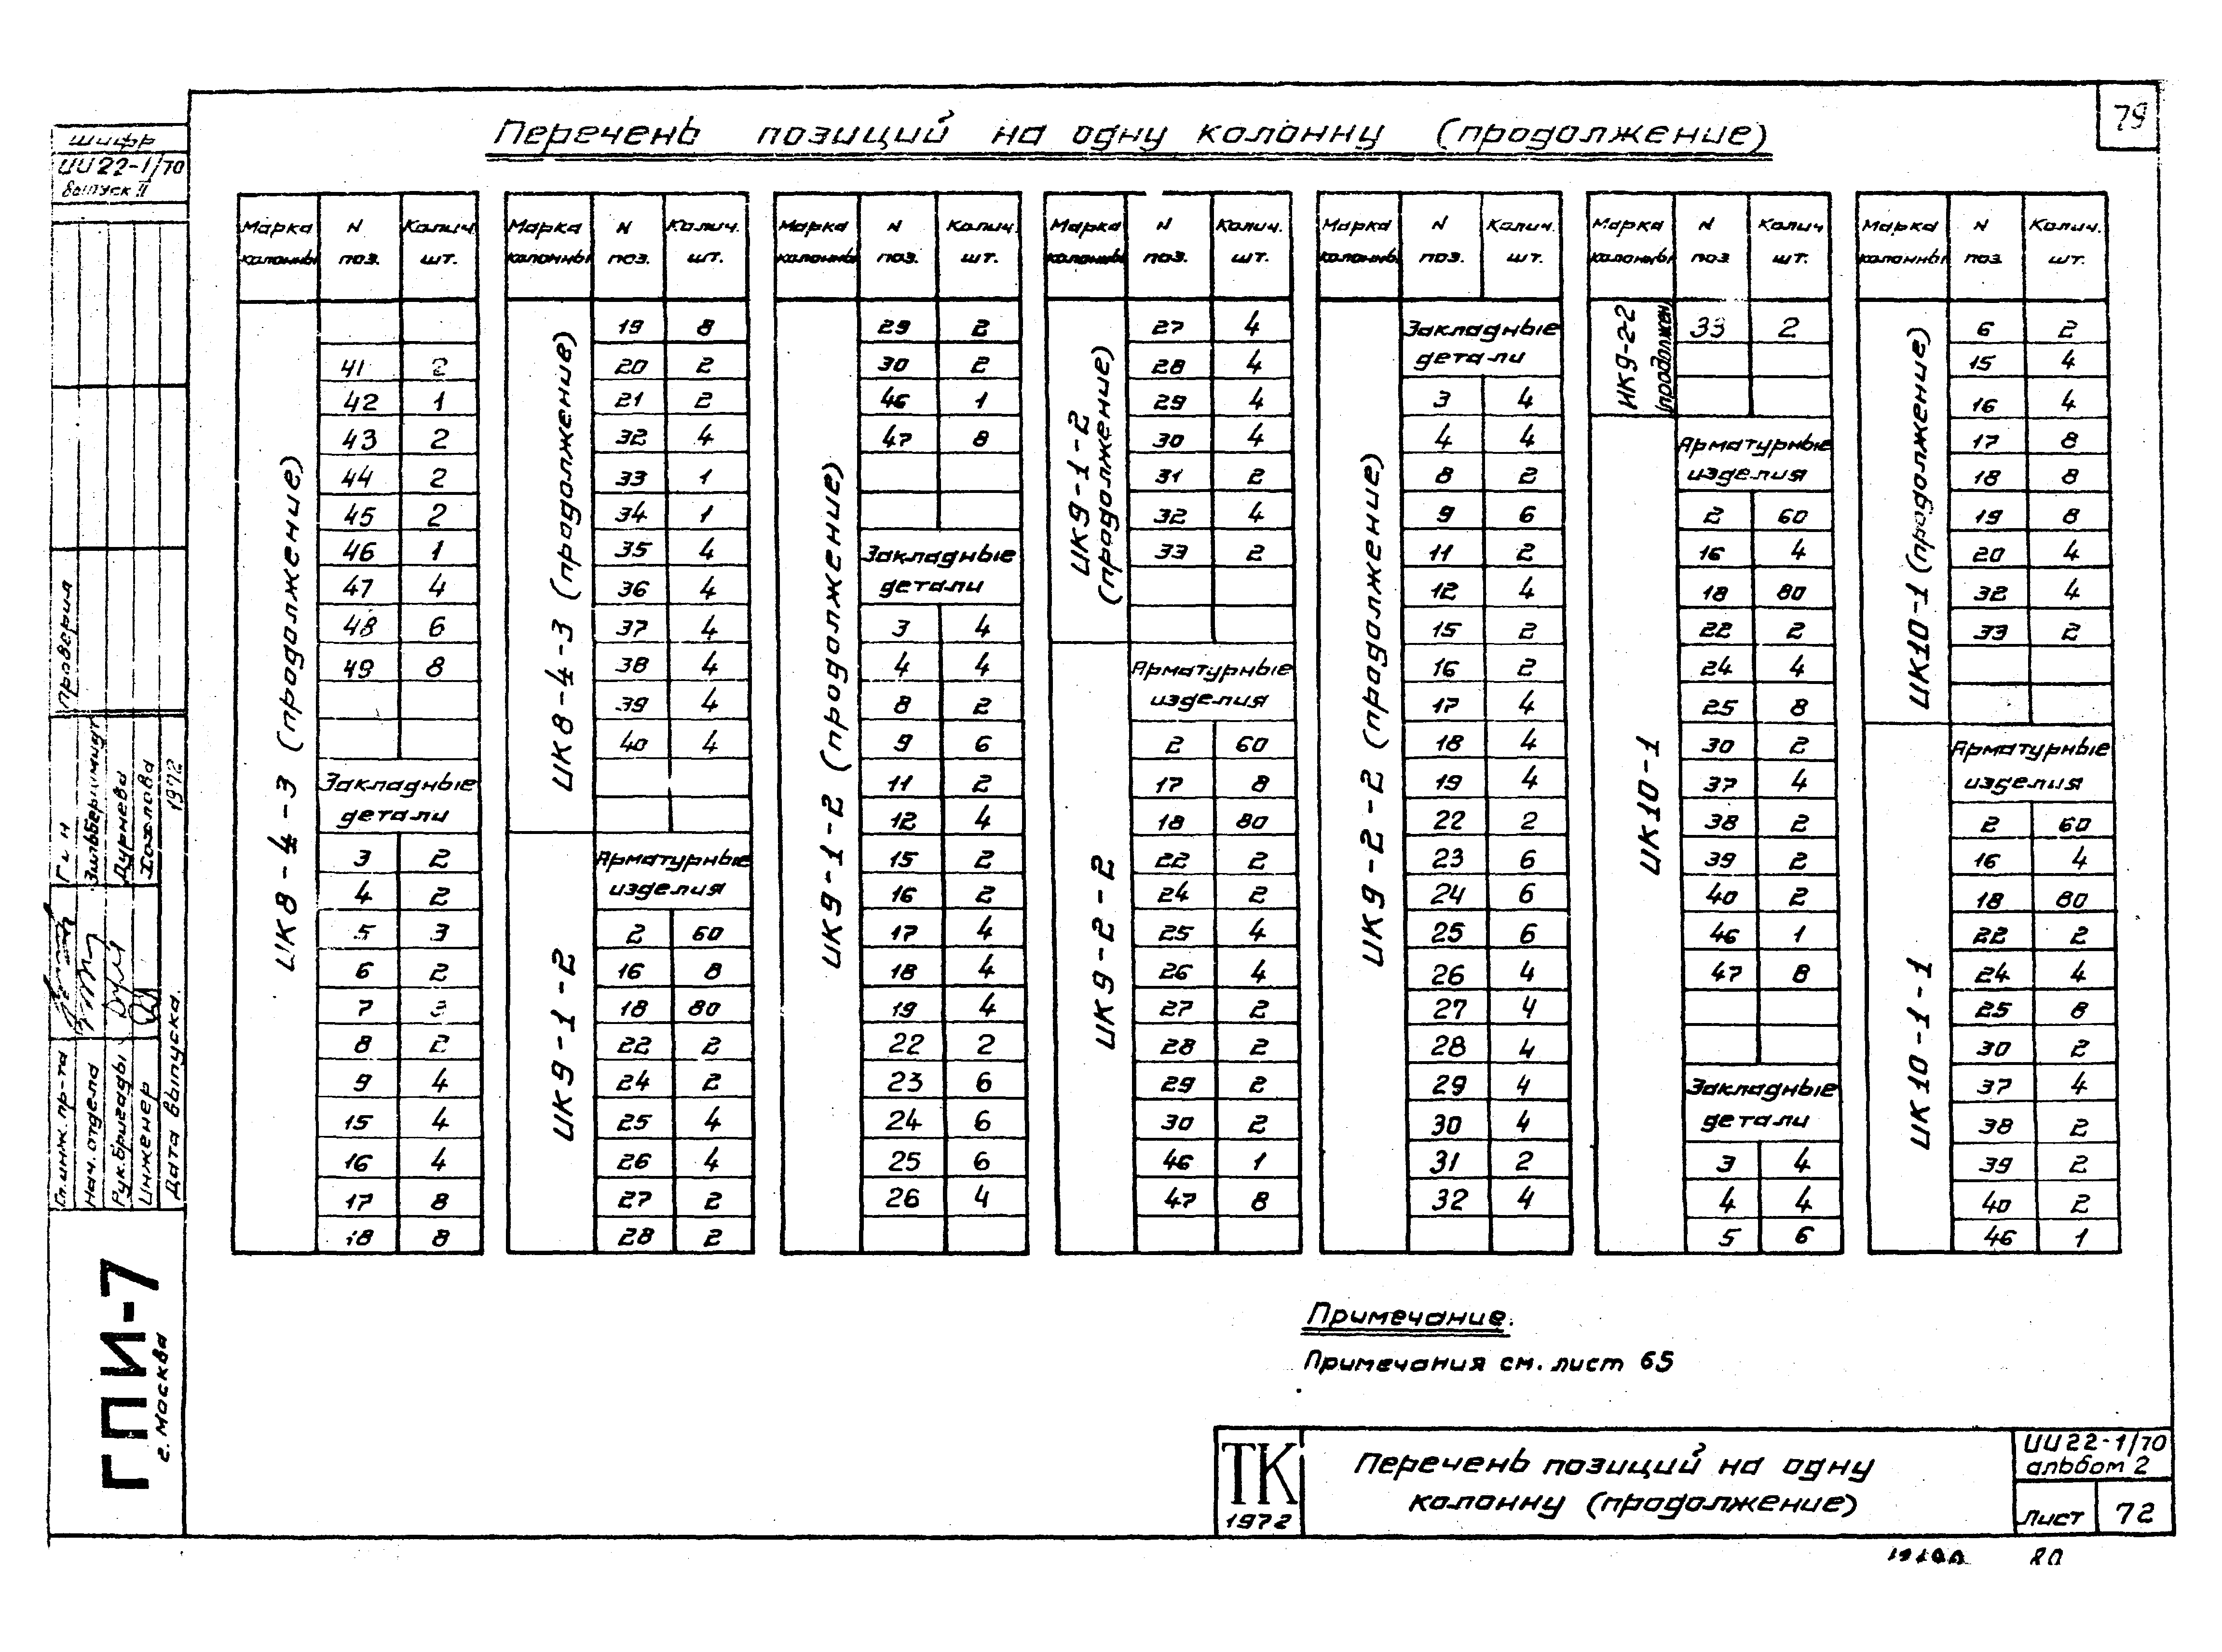 79
Перечень позиций на одну колонну (продолжение)
шифр
ИИ22-1/70
выпуск II
Проверил
Гл. инж. пр-та
Нач. отдела
Рук. бригады
Инженер
Дата выпуска.
Зильберминут
Дурнева
1972
ГПИ-7
г. Москва
Марка колонны | N поз. | Колич. шт.
ИК8-4-3 (продолжение)
41 2
42 1
43 2
44 2
45 2
46 1
47 4
48 6
49 8
Закладные
детали
3 2
4 2
5 3
6 2
7 3
8 2
9 4
15 4
16 4
17 8
18 8
Марка колонны | N поз. | Колич. шт.
ИК8-4-3 (продолжение)
19 8
20 2
21 2
32 4
33 1
34 1
35 4
36 4
37 4
38 4
39 4
40 4
ИК9-1-2
Арматурные
изделия
2 60
16 8
18 80
22 2
24 2
25 4
26 4
27 2
28 2
Марка колонны | N поз. | Колич. шт.
ИК9-1-2 (продолжение)
29 2
30 2
46 1
47 8
Закладные
детали
3 4
4 4
8 2
9 6
11 2
12 4
15 2
16 2
17 4
18 4
19 4
22 2
23 6
24 6
25 6
26 4
Марка колонны | N поз. | Колич. шт.
ИК9-1-2
(продолжение)
27 4
28 4
29 4
30 4
31 2
32 4
33 2
ИК9-2-2
Арматурные
изделия
2 60
17 8
18 80
22 2
24 2
25 4
26 4
27 2
28 2
29 2
30 2
46 1
47 8
Марка колонны | N поз. | Колич. шт.
ИК9-2-2 (продолжение)
Закладные
детали
3 4
4 4
8 2
9 6
11 2
12 4
15 2
16 2
17 4
18 4
19 4
22 2
23 6
24 6
25 6
26 4
27 4
28 4
29 4
30 4
31 2
32 4
Марка колонны | N поз | Колич шт.
ИК9-2-2
(продолжен)
33 2
ИК10-1
Арматурные
изделия
2 60
16 4
18 80
22 2
24 4
25 8
30 2
37 4
38 2
39 2
40 2
46 1
47 8
Закладные
детали
3 4
4 4
5 6
Марка колонны | N поз | Колич. шт.
ИК10-1 (продолжение)
6 2
15 4
16 4
17 8
18 8
19 8
20 4
32 4
33 2
ИК10-1-1
Арматурные
изделия
2 60
16 4
18 80
22 2
24 4
25 8
30 2
37 4
38 2
39 2
40 2
46 1
Примечание.
Примечания см. лист 65
ТК
1972
Перечень позиций на одну
колонну (продолжение)
ИИ22-1/70
альбом 2
Лист 72
80